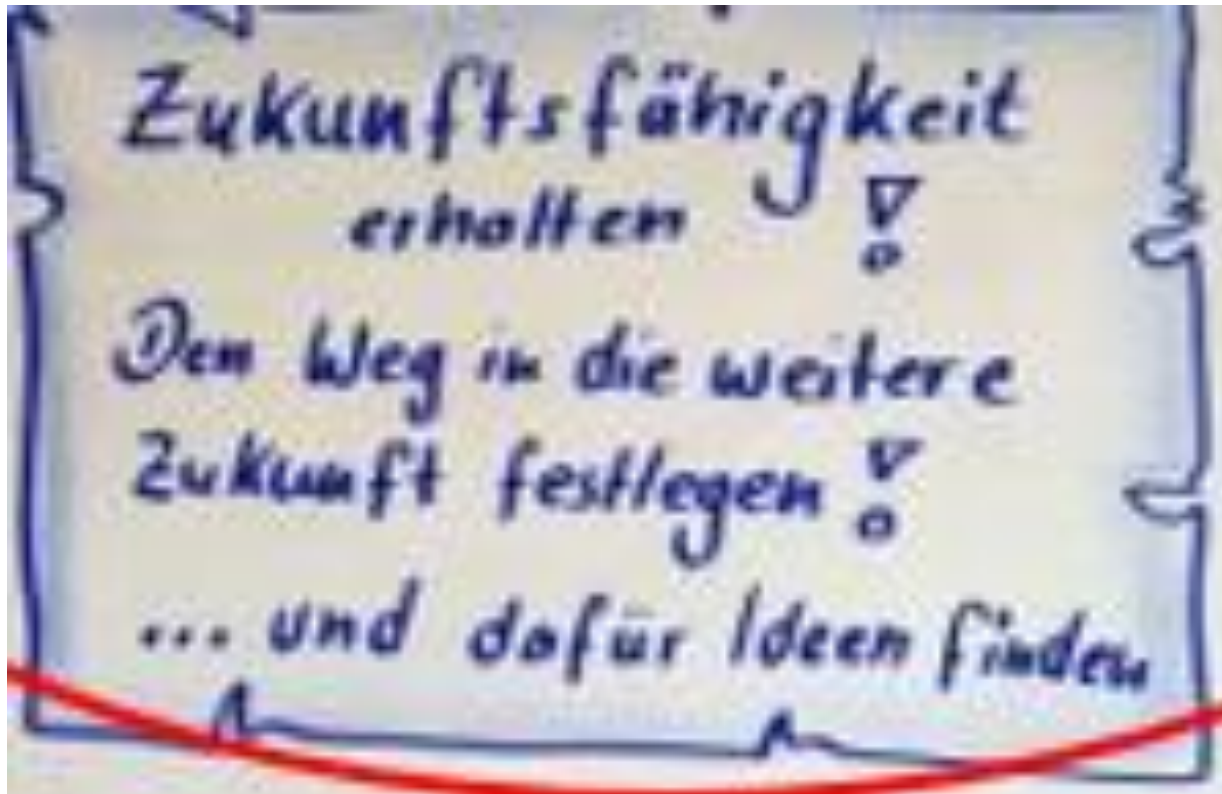 Zukunftsfähigkeit
erhalten !
Den Weg in die weitere
Zukunft festlegen !
... und dafür Ideen finden